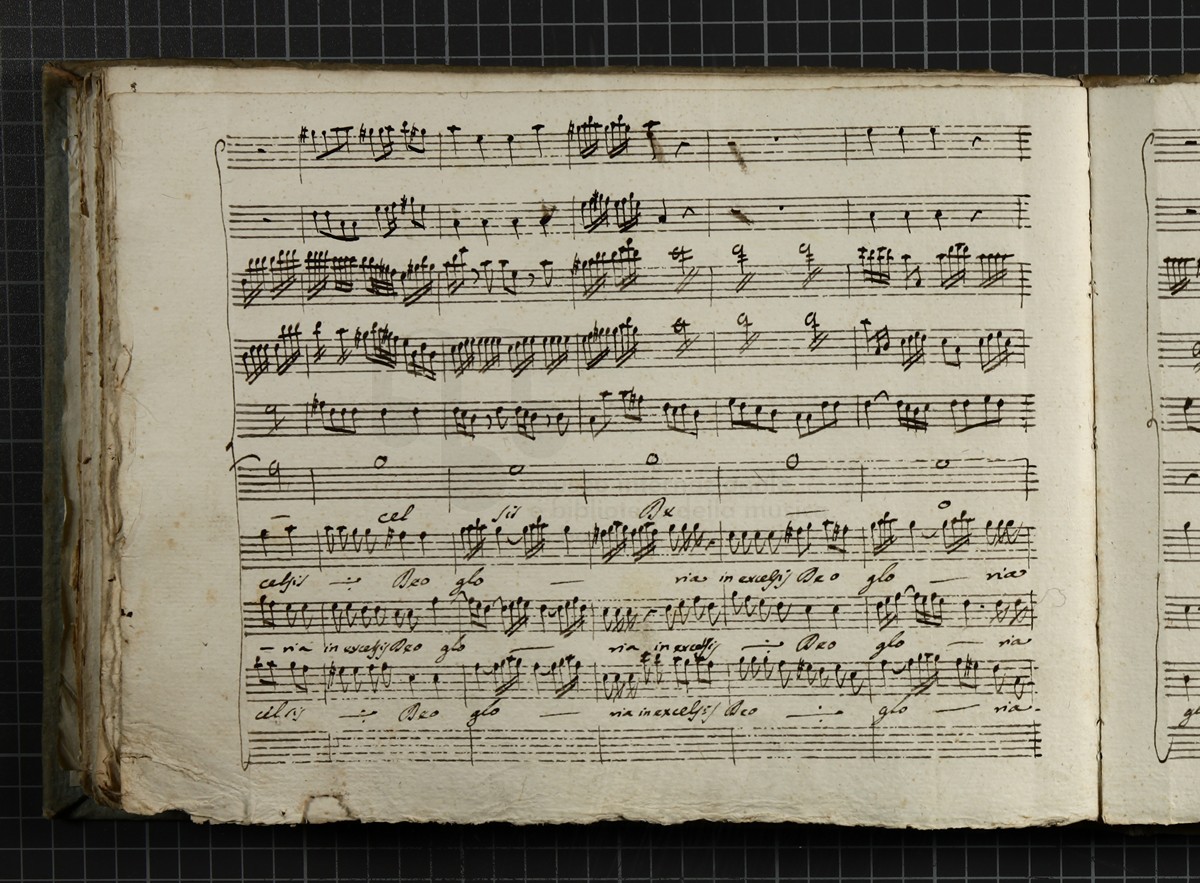 cel sis De o
celsis Deo glo ria in excelsis Deo glo ria
ria in excelsis Deo glo ria in excelsis Deo glo ria
celsis Deo glo ria in excelsis Deo glo ria